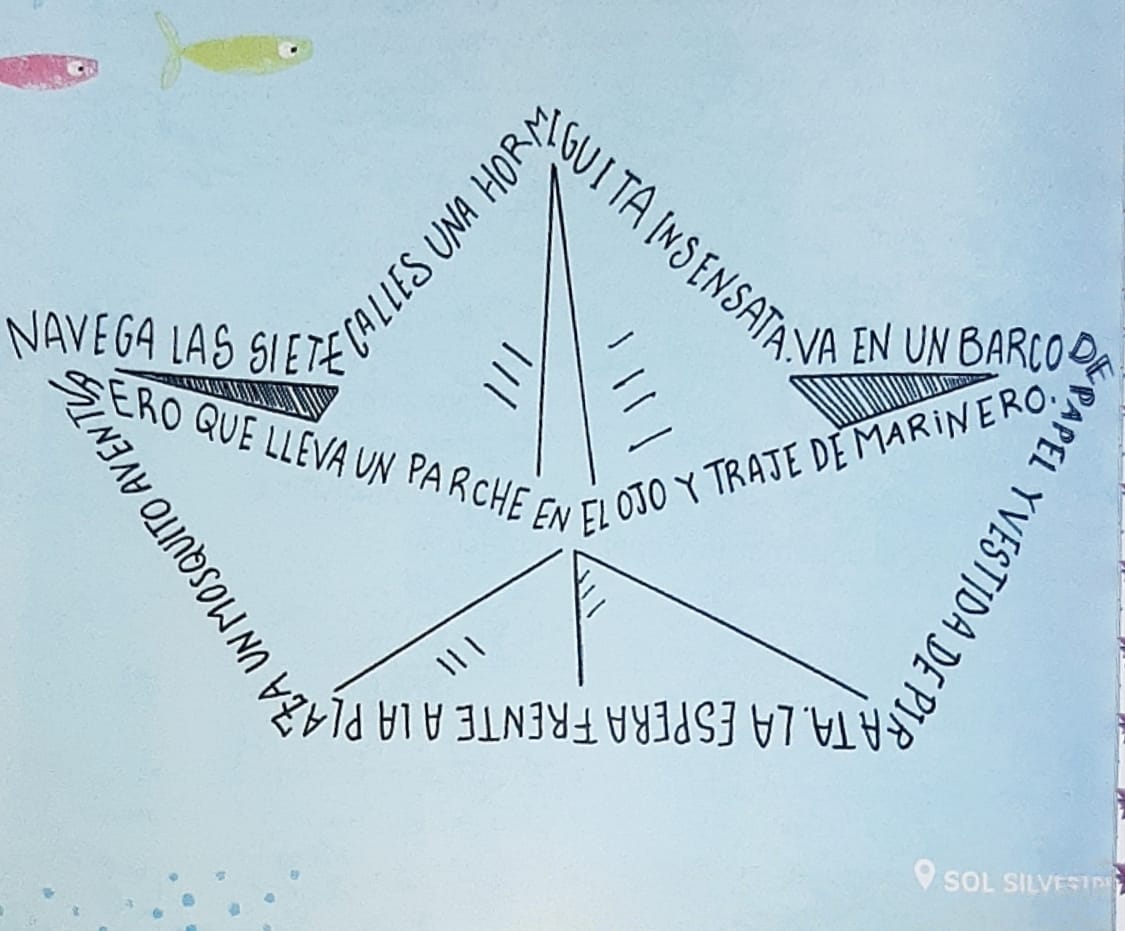 NAVEGA LAS SIETE
CALLES UNA HORMIGUITA INSENSATA.
VA EN UN BARCO
DE PAPEL Y VESTIDA DE PIRATA.
LA ESPERA FRENTE A LA PLAZA
UN MOSQUITO AVENTURERO
QUE LLEVA UN PARCHE EN EL OJO Y TRAJE DE MARINERO.
SOL SILVESTRE